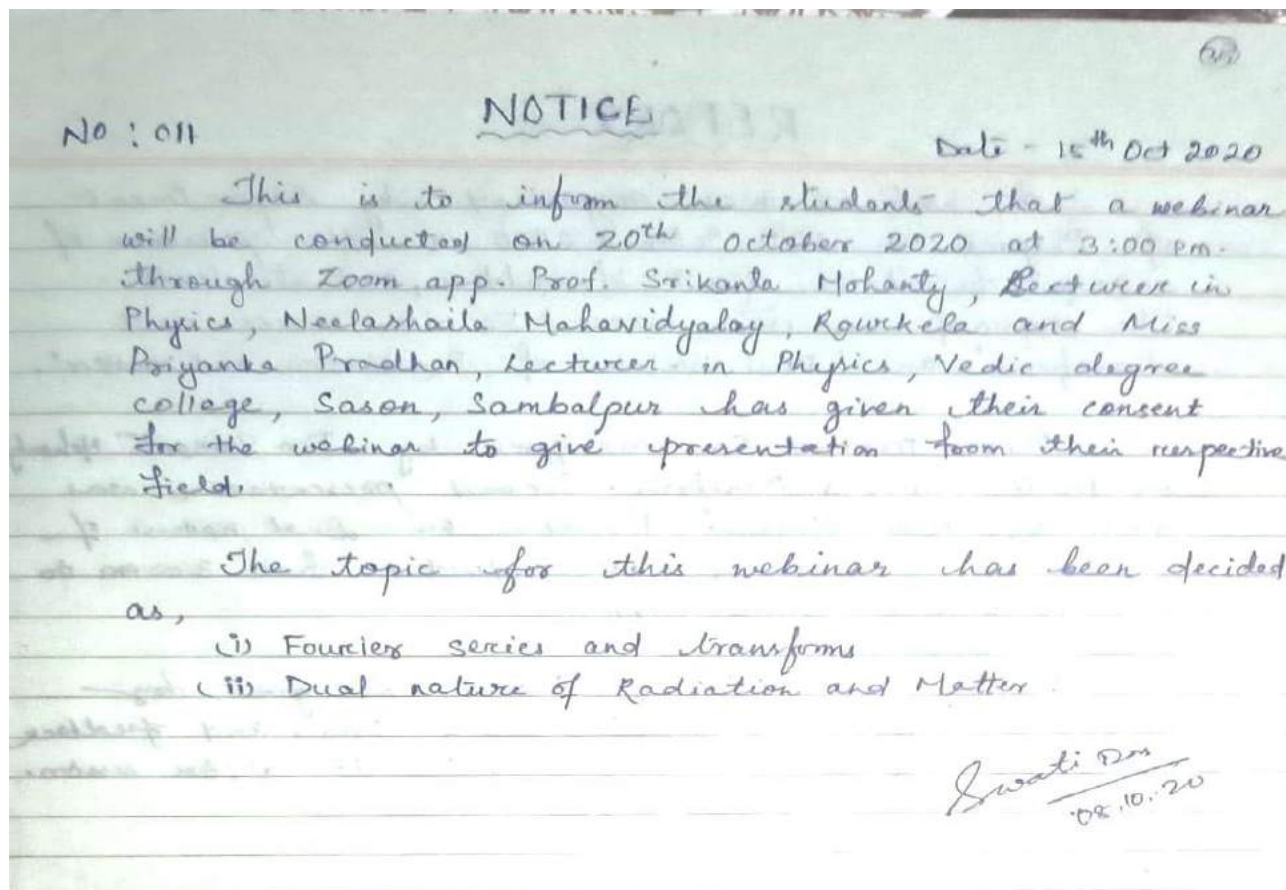 NOTICE
No : 011
Date - 15th Oct 2020
This is to inform the students that a webinar
will be conducted on 20th October 2020 at 3:00 pm.
through Zoom app. Prof. Srikanta Mohanty, Lecturer in
Physics, Neelashaila Mahavidyalay, Rourkela and Miss
Priyanka Pradhan, Lecturer in Physics, Vedic degree
college, Sason, Sambalpur has given their consent
for the webinar to give presentation from their respective
field.
The topic for this webinar has been decided
as,
(i) Fourier series and transforms
(ii) Dual nature of Radiation and Matter
Swati Das
08.10.20